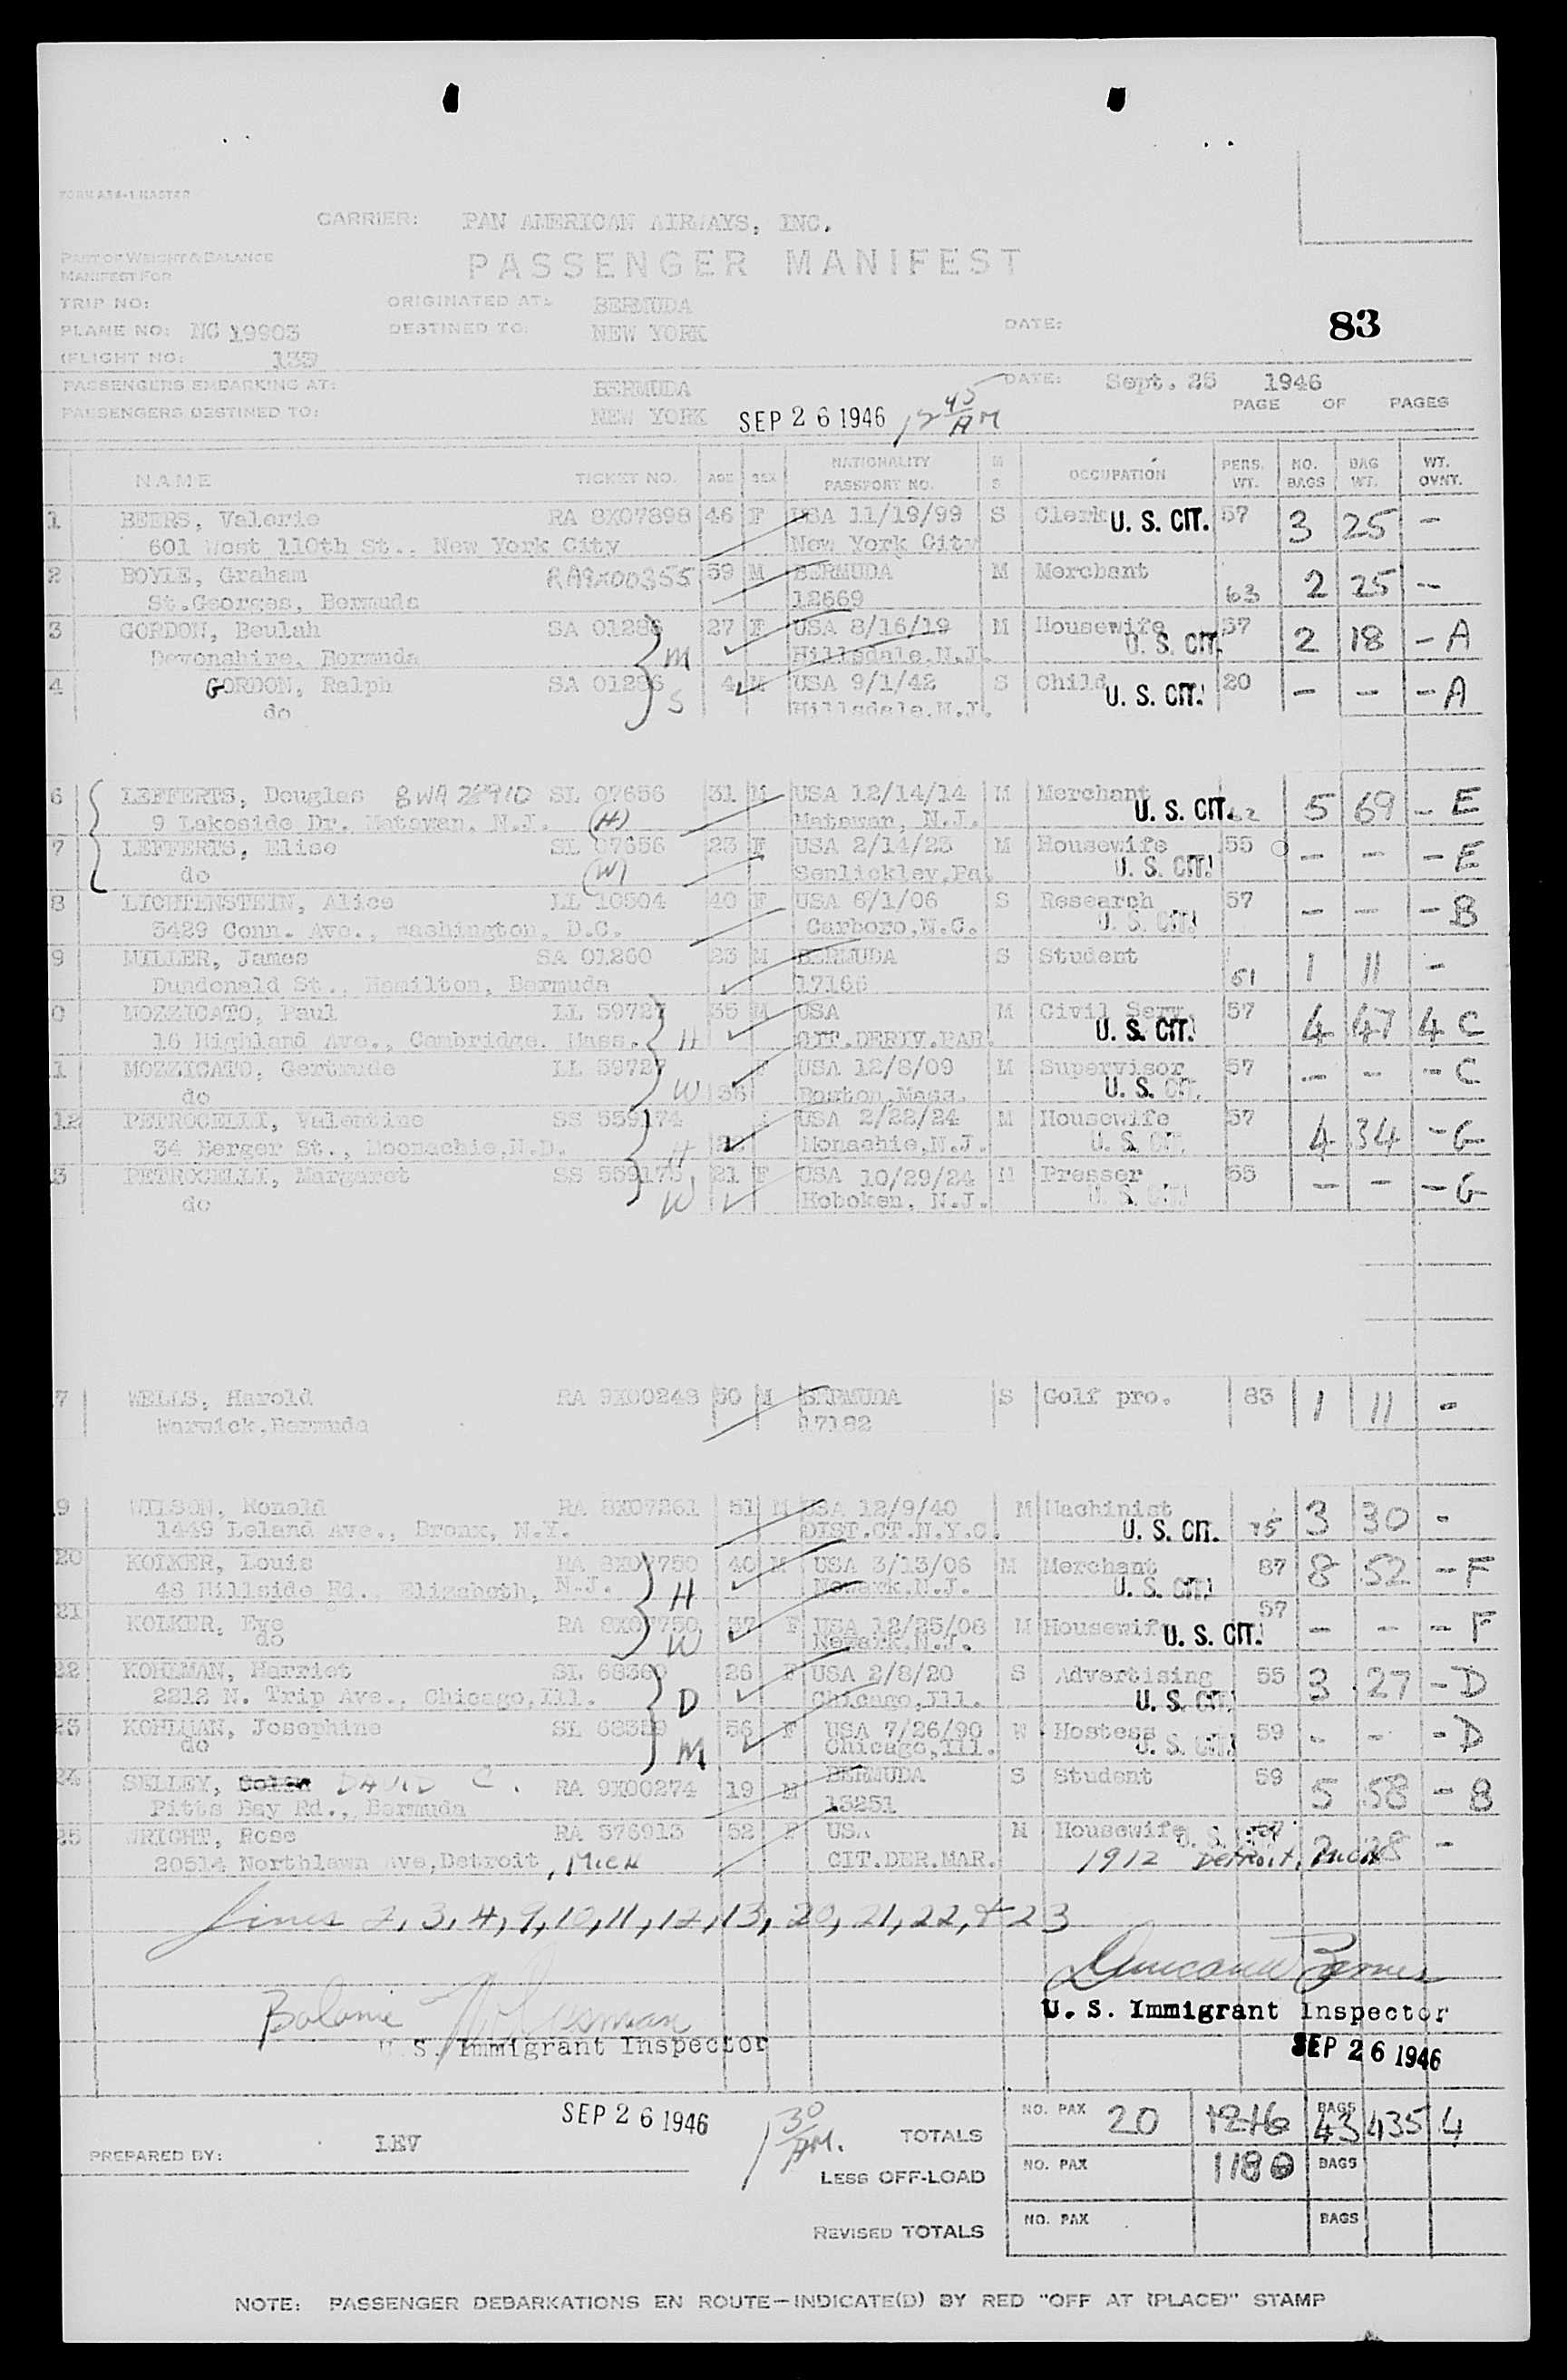 FORM AS4-1 MASTER
CARRIER: PAN AMERICAN AIRWAYS, INC.
PART OF WEIGHT & BALANCE
MANIFEST FOR
PASSENGER MANIFEST
TRIP NO: ORIGINATED AT: BERMUDA
PLANE NO: NC 19903 DESTINED TO: NEW YORK DATE: 83
(FLIGHT NO: 133
PASSENGERS EMBARKING AT: BERMUDA DATE: Sept. 25 1946
PASSENGERS DESTINED TO: NEW YORK SEP 26 1946 12 45 AM PAGE OF PAGES
NAME TICKET NO. AGE SEX NATIONALITY PASSPORT NO. M S OCCUPATION PERS. WT. NO. BAGS BAG WT. WT. OVNT.
1 BEERS, Valerie RA 8X07898 46 F USA 11/19/99 S Clerk U. S. CIT. 57 3 25 -
601 West 110th St., New York City New York City
2 BOYLE, Graham RA9X00355 59 M BERMUDA M Merchant 63 2 25 -
St.Georges, Bermuda 12669
3 GORDON, Beulah SA 01286 M 27 F USA 8/16/19 M Housewife U. S. CIT. 57 2 18 - A
Devonshire, Bermuda Hillsdale,N.J.
4 GORDON, Ralph SA 01286 S 4 M USA 9/1/42 S Child U. S. CIT. 20 - - - A
do Hillsdale,N.J.
6 LEFFERTS, Douglas SL 07656 31 M USA 12/14/14 M Merchant U. S. CIT. 62 5 69 - E
9 Lakeside Dr. Matawan, N.J. (H) Matawan, N.J.
7 LEFFERTS, Elise SL 07656 23 F USA 2/14/23 M Housewife 55 - - - E
do (W) Senlickley,Pa. U. S. CIT.
8 LICHTENSTEIN, Alice LL 10504 40 F USA 6/1/06 S Research 57 - - - B
5429 Conn. Ave., Washington, D.C. Carboro,N.C. U. S. CIT.
9 MILLER, James SA 01260 23 M BERMUDA S Student 51 1 11 -
Dundonald St., Hamilton, Bermuda 17166
0 MOZZICATO, Paul LL 59727 35 M USA M Civil Serv. 57 4 47 4 C
16 Highland Ave., Cambridge, Mass. H CIT.DERIV.PAR. U. S. CIT.
1 MOZZICATO, Gertrude LL 59727 W 36 F USA 12/8/09 M Supervisor 57 - - - C
do Boston,Mass. U. S. CIT.
12 PETROCELLI, Valentine SS 559174 USA 2/22/24 M Housewife 57 4 34 - G
34 Berger St., Moonachie,N.D. H Monachie,N.J. U. S. CIT.
3 PETROCELLI, Margaret SS 559175 21 F USA 10/29/24 M Presser 55 - - - G
do W Hoboken, N.J. U. S. CIT.
7 WELLS, Harold RA 9X00248 50 M BERMUDA S Golf pro. 83 1 11 -
Warwick,Bermuda 17182
9 WILSON, Ronald RA 8X07261 51 M USA 12/9/40 M Machinist 75 3 30 -
1449 Leland Ave., Bronx, N.Y. DIST.CT.N.Y.C. U. S. CIT.
20 KOLKER, Louis RA 8X07750 40 M USA 3/13/06 M Merchant 87 8 52 - F
48 Hillside Rd., Elizabeth, N.J. H Newark,N.J. U. S. CIT.
21 KOLKER, Eve RA 8X07750 37 F USA 12/25/08 M Housewife U. S. CIT. 57 - - - F
do W Newark,N.J.
22 KOHLMAN, Harriet SL 68360 26 F USA 2/8/20 S Advertising 55 3 27 - D
2212 N. Trip Ave., Chicago,Ill. D Chicago,Ill. U. S. CIT.
23 KOHLMAN, Josephine SL 68359 56 F USA 7/26/90 W Hostess 59 - - - D
do M Chicago,Ill. U. S. CIT.
24 SELLEY, DAVID C. RA 9X00274 19 M BERMUDA S Student 59 5 58 - 8
Pitts Bay Rd., Bermuda 13251
25 WRIGHT, Rose RA 576913 52 F USA M Housewife U. S. CIT. 57 2 28 -
20514 Northlawn Ave,Detroit, MICH CIT.DER.MAR. 1912 Detroit, Mich
Lines 2, 3, 4, 9, 10, 11, 12, 13, 20, 21, 22, & 23
U. S. Immigrant Inspector
U. S. Immigrant Inspector
SEP 26 1946
SEP 26 1946 1 30 AM.
PREPARED BY: LEV
TOTALS NO. PAX 20 1216 BAGS 43 435 4
LESS OFF-LOAD NO. PAX 1180 BAGS
REVISED TOTALS NO. PAX BAGS
NOTE: PASSENGER DEBARKATIONS EN ROUTE—INDICATE(D) BY RED "OFF AT (PLACE)" STAMP